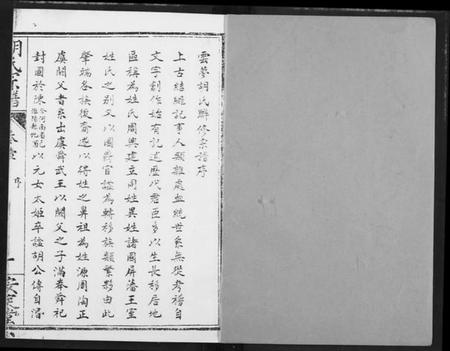 雲夢胡氏聯修宗譜序
上古結繩記事人類雜處血統世系無從考稽自
文字創作始有記述歷代君臣多以生長移居地
區稱為姓氏周興建立同姓異姓諸國屏藩王室
姓氏之別又以國爵官諡為轉移族類繁夥由此
肇端各族後裔遂以得姓之鼻祖為姓源周陶正
虞閼父者系出虞舜武王以閼父之子滿奉舜祀
封國於陳今河南省 淮陽縣 以元女太姬卒諡胡公傳自
胡氏宗譜 卷壹 序 一 安定堂